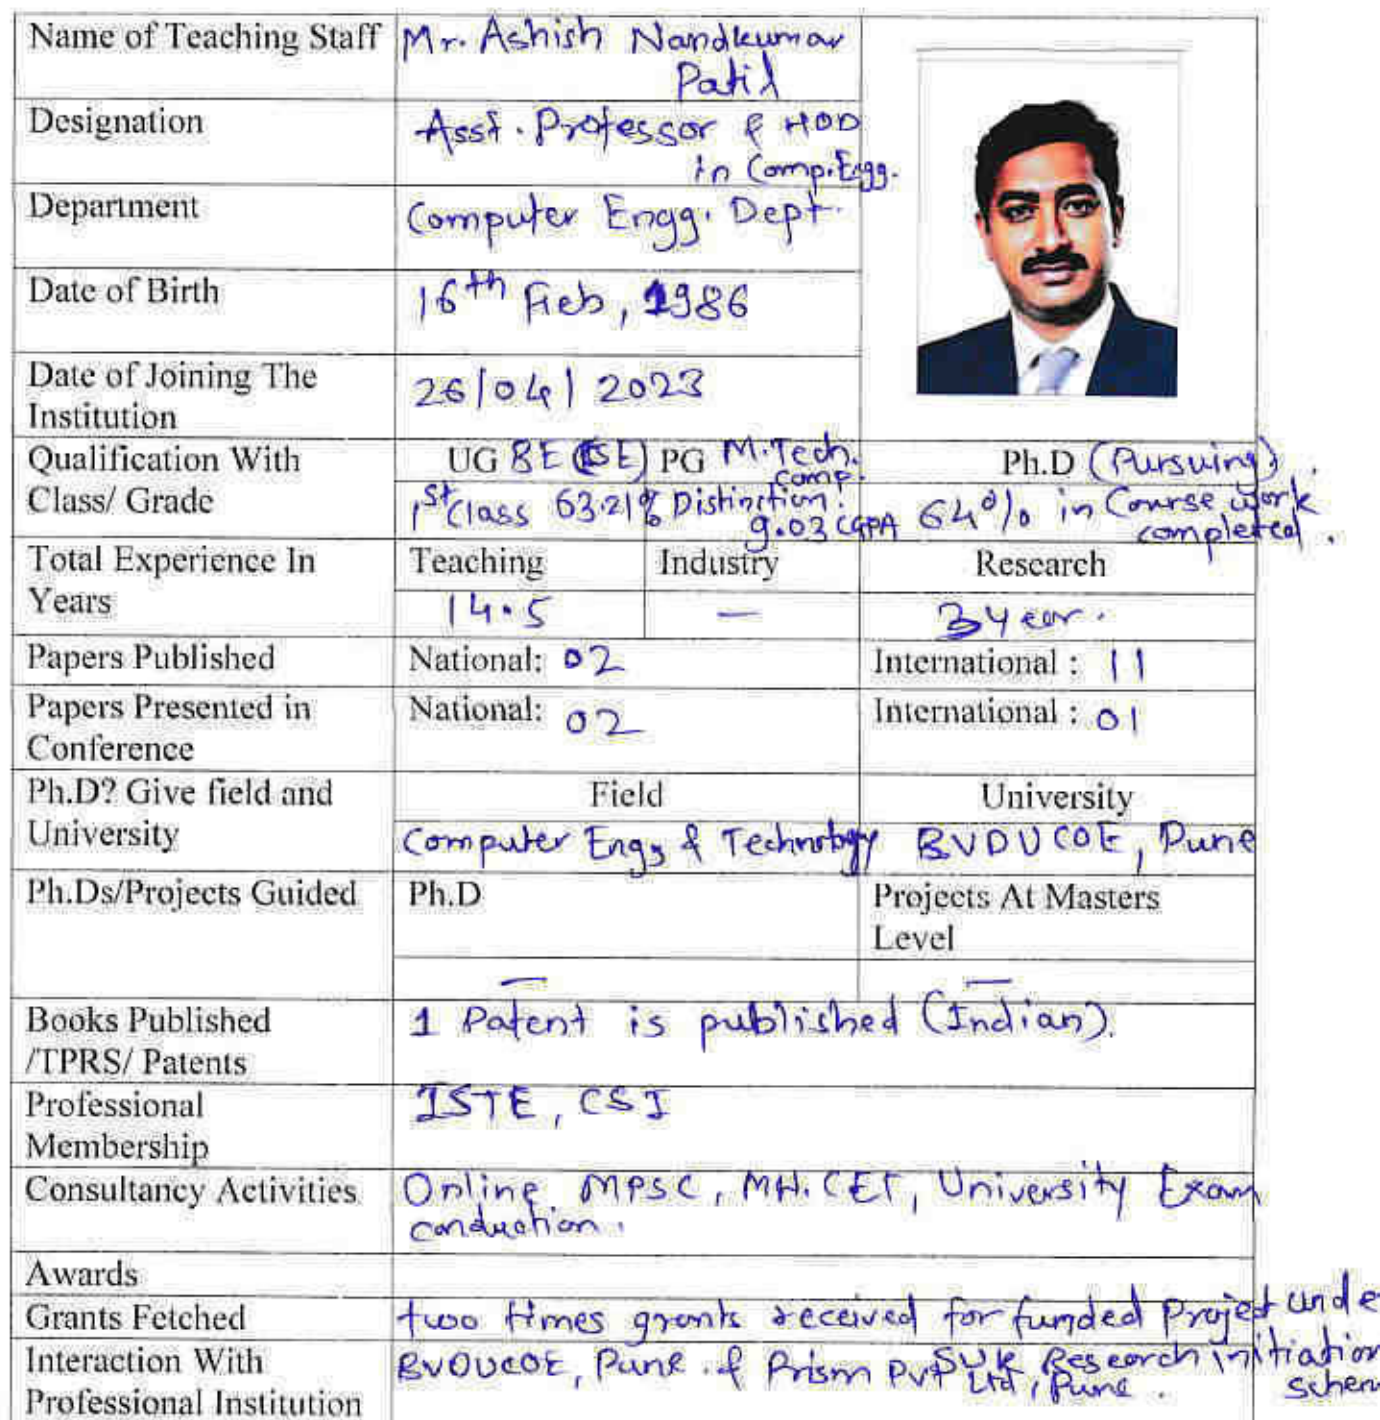 Name of Teaching Staff Mr. Ashish Nandkumar
Patil
Designation Asst. Professor & HOD
in Comp. Engg.
Department Computer Engg. Dept.
Date of Birth 16th Feb, 1986
Date of Joining The
Institution 26/04/2023
Qualification With
Class/ Grade
UG BE (CSE) PG M.Tech. Comp. Ph.D (Pursuing).
1st Class 63.21% Distinction! 9.03 CGPA 64% in Course work
completed.
Total Experience In
Years
Teaching Industry Research
14.5 — 3 Year.
Papers Published National: 02 International : 11
Papers Presented in
Conference
National: 02 International : 01
Ph.D? Give field and
University
Field University
Computer Engg & Technology BVDUCOE, Pune
Ph.Ds/Projects Guided Ph.D Projects At Masters
Level
— —
Books Published
/TPRS/ Patents
1 Patent is published (Indian).
Professional
Membership
ISTE, CSI
Consultancy Activities Online MPSC, MH.CET, University Exam
conduction.
Awards
Grants Fetched two times grants received for funded Project unde
SUK Research initiation
schem
Interaction With
Professional Institution
BVDUCOE, Pune. & Prism Pvt Ltd, Pune.